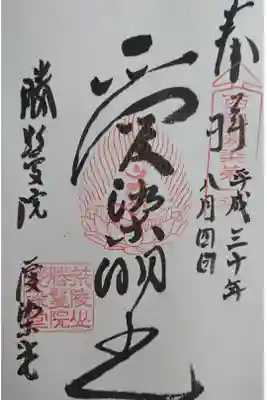 奉拝
平成三十年
八月四日
愛染明王
勝鬘院
愛染堂
荒陵山
勝鬘院
愛染堂